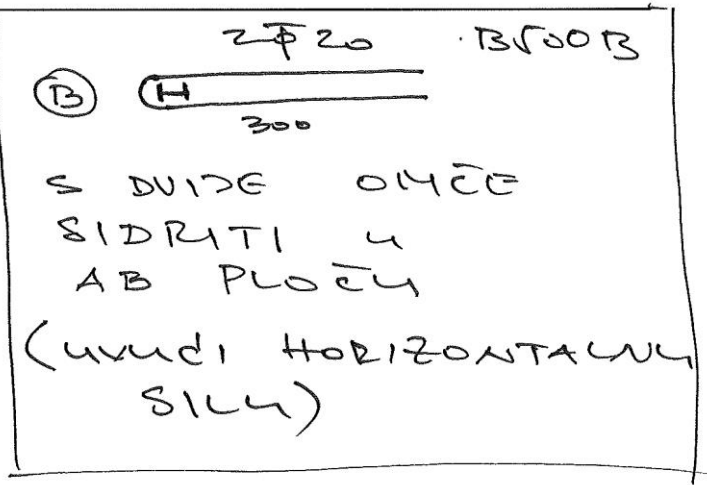 2Φ20 B500B
B H
300
S DVIJE OMČE
SIDRITI U
AB PLOČU
(UVUĆI HORIZONTALNU
SILU)